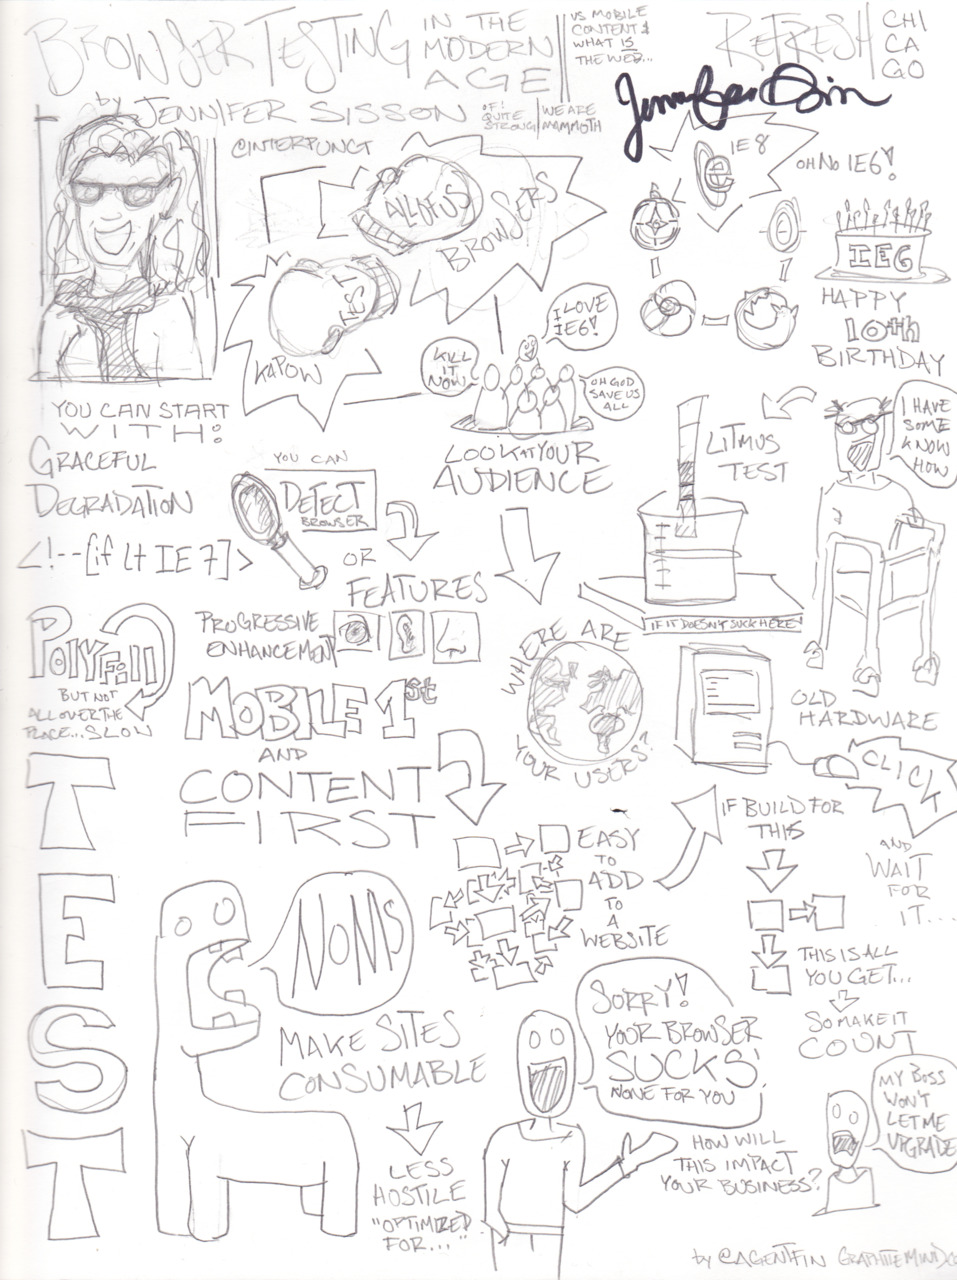 BROWSER TESTING
IN THE
MODERN
AGE
VS MOBILE
CONTENT &
WHAT IS
THE WEB...
REFRESH
CHI
CA
GO
by JENNIFER SISSON
OF:
QUITE
STRONG
WE ARE
MAMMOTH
@INTERPUNCT
ALL OF US
BROWSERS
TEST
KAPOW
IE 8
OH NO IE6!
IE6
HAPPY
10th
BIRTHDAY
I LOVE
IE6!
KILL
IT
NOW
OH GOD
SAVE US
ALL
LOOK AT YOUR
AUDIENCE
LITMUS
TEST
I HAVE
SOME
KNOW
HOW
YOU CAN START
WITH:
GRACEFUL
DEGRADATION
<!--[if lt IE 7]>
YOU CAN
DETECT
BROWSER
OR
FEATURES
IF IT DOESN'T SUCK HERE
POLYFILL
BUT NOT
ALL OVER THE
PLACE...SLOW
PROGRESSIVE
ENHANCEMENT
MOBILE 1st
AND
CONTENT
FIRST
WHERE ARE
YOUR USERS?
OLD
HARDWARE
CLICK
AND
WAIT
FOR
IT...
TEST
EASY
TO
ADD
TO
A
WEBSITE
IF BUILD FOR
THIS
THIS IS ALL
YOU GET...
SO MAKE IT
COUNT
NOMS
MAKE SITES
CONSUMABLE
LESS
HOSTILE
"OPTIMIZED
FOR..."
SORRY!
YOUR BROWSER
SUCKS!
NONE FOR YOU
HOW WILL
THIS IMPACT
YOUR BUSINESS?
MY BOSS
WON'T
LET ME
UPGRADE
by @AGENTFIN GRAPHITEMIND.CO